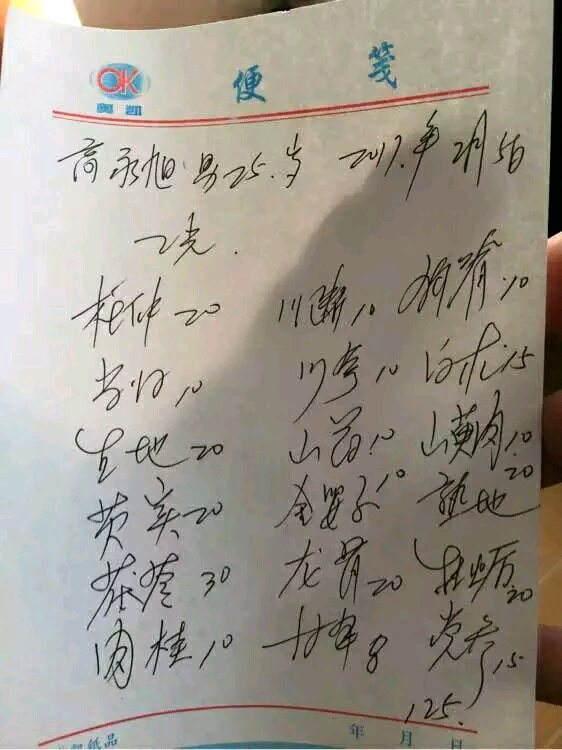 OK
奥凯
便笺
高永旭 男25.岁 2017.年2月5日
杜仲20 川断10 狗脊10
当归10 川芎10 白术15
生地20 山药10 山萸肉10
芡实20 金婴子10 熟地20
茯苓30 龙骨20 牡蛎20
肉桂10 甘草8 党参15
125.
年 月 日